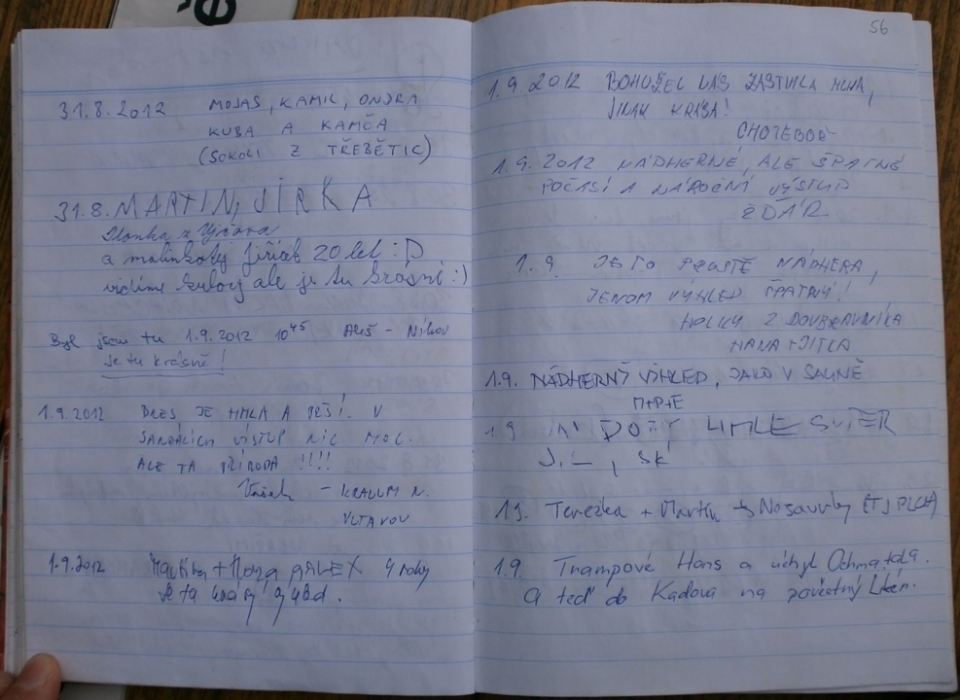 31.8.2012 MOJAS, KAMIL, ONDRA
KUBA A KAMČA
(SOKOLI Z TŘEBĚTIC)
31.8. MARTIN, JIRKA
a malinkatej 20 let :D
ale je tu krásně :)
Byl jsem tu 1.9.2012 10 45 Aleš -
Je tu krásně!
1.9.2012 DNES JE MLHA A V
SANDÁLÍCH VÝSTUP NIC MOC.
ALE TA PŘÍRODA !!!!
Vašek - KRALUPY N.
VLTAVOU
1.9.2012 + ALEX 4 roky
Je tu
56
1.9.2012 BOHUŽEL NÁS ZASTIHLA MLHA,
JINAK KRÁSA!
CHOTĚBOŘ
1.9.2012 NÁDHERNÉ, ALE ŠPATNÉ
POČASÍ A NÁROČNÍ VÝSTUP
ŽĎÁR
1.9. JE TO PROSTĚ NÁDHERA,
JENOM VÝHLED ŠPATNÝ!
HOLKY Z DOUBRAVNÍKA
HANA + JITKA
1.9. NÁDHERNÝ VÝHLED, JAKO V SAUNĚ
M+P+E
1.9
1.9. Terezka + Martin
1.9. Trampové Hans a úchyl Ochmatda.
A teď do Kadova na pověstný